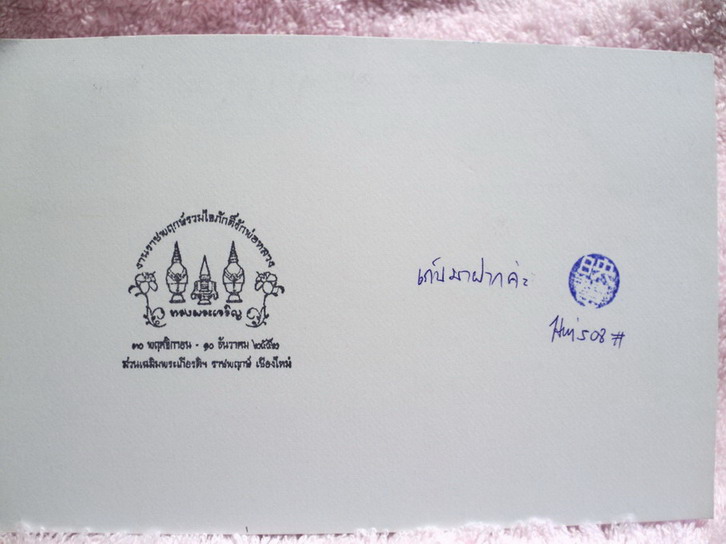 งานราชพฤกษ์รวมใจภักดิ์รักพ่อหลวง
ทรงพระเจริญ
๓๐ พฤศจิกายน - ๑๐ ธันวาคม ๒๕๕๒
สวนเฉลิมพระเกียรติฯ ราชพฤกษ์ เชียงใหม่
เก็บมาฝากค่ะ